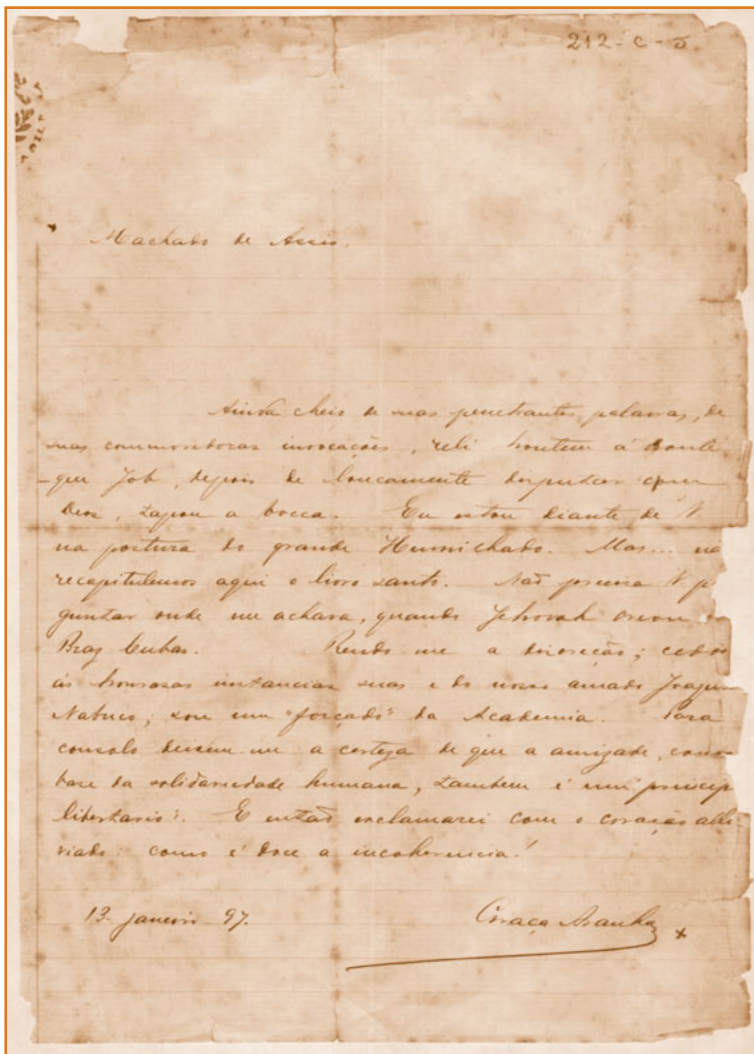 212-C-5
Machado de Assis.
Ainda cheio de suas penetrantes palavras, de
suas commovedoras invocações, reli hontem á noute
que Job, depois de loucamente disputar com
Deos, tapou a bocca. Eu estou diante de V.
na postura do grande Humilhado. Mas... não
recapitulemos aqui o livro santo. Não precisa V. per
guntar onde me achava, quando Jehovah creou
Braz Cubas. Rendo-me a discreção; cedo
ás honrosas instancias suas e do nosso amado Joaquim
Nabuco; sou um "forçado" da Academia. Para
consolo deixem-me a certeza de que a amizade, como
base da solidariedade humana, tambem é um "princip
libertario". E então exclamarei com o coração alli-
viado: como é doce a incoherencia!
13 janeiro 97.
Graça Aranha